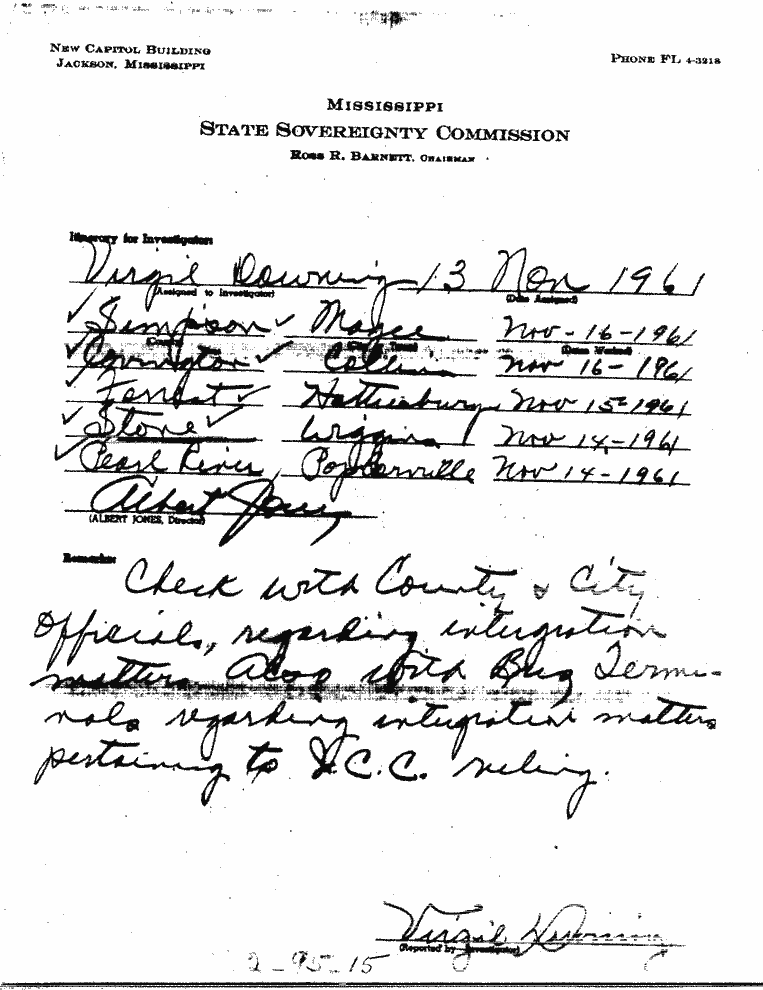 NEW CAPITOL BUILDING
JACKSON, MISSISSIPPI
PHONE FL 4-3218
MISSISSIPPI
STATE SOVEREIGNTY COMMISSION
ROSS R. BARNETT, CHAIRMAN
Itinerary for Investigators
Virgil Downing 13 Nov 1961
(Assigned to Investigator) (Date Assigned)
✓ Simpson ✓ Magee Nov-16-1961
County (Dates Worked)
✓ Covington ✓ Collins Nov 16-1961
✓ Forrest ✓ Hattiesburg Nov 15-1961
✓ Stone ✓ Wiggins Nov 14-1961
✓ Pearl River, Poplarville Nov 14-1961
Albert Jones
(ALBERT JONES, Director)
Remarks:
Check with County & City
Officials, regarding intergration
matters Also with Bus Termi-
nals regarding intergration matters
pertaining to I.C.C. ruling.
Virgil Downing
(Reported by Investigator)
2-95-15